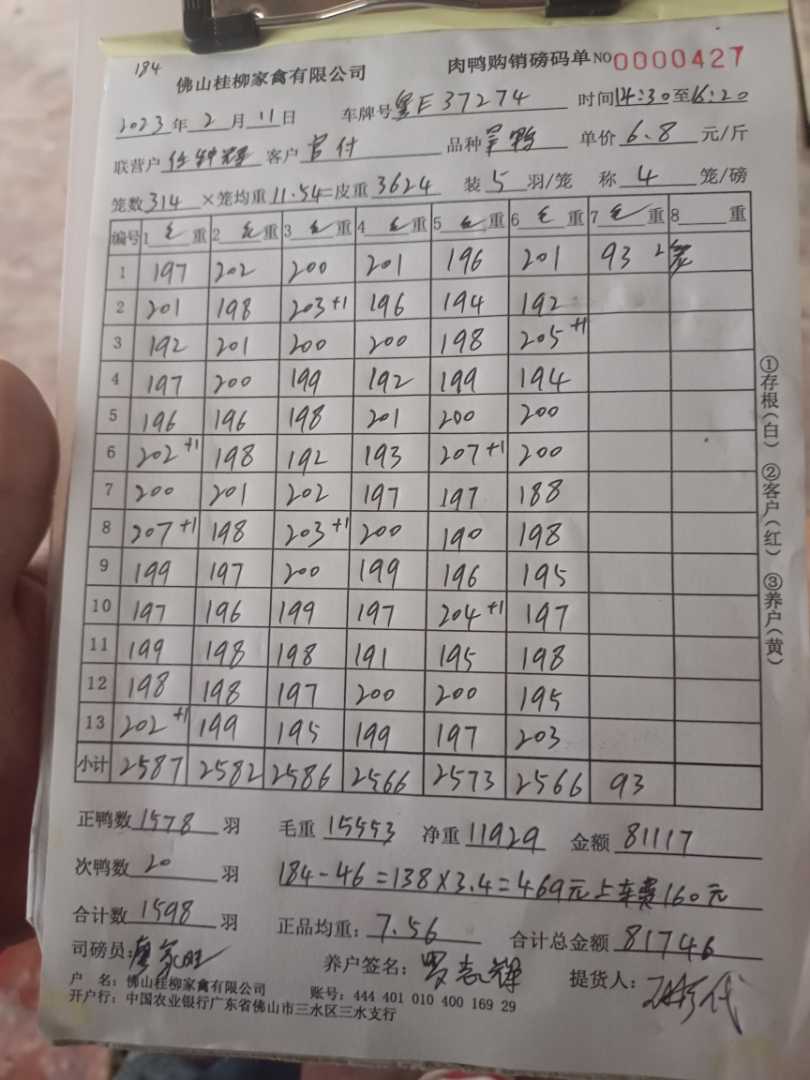 184
佛山桂柳家禽有限公司 肉鸭购销磅码单 NO 0000427
2023年2月11日 车牌号 粤E37274 时间14:30至16:20
联营户 客户 品种 单价6.8元/斤
笼数314×笼均重11.54=皮重3624 装5羽/笼 称4笼/磅
编号 1毛重 2毛重 3毛重 4毛重 5毛重 6毛重 7毛重 8 重
1 197 202 200 201 196 201 93 2笼
2 201 198 203+1 196 194 192
3 192 201 200 200 198 205+1
4 197 200 199 192 199 194
5 196 196 198 201 200 200
6 202+1 198 192 193 207+1 200
7 200 201 202 197 197 188
8 207+1 198 203+1 200 190 198
9 199 197 200 199 196 195
10 197 196 199 197 204+1 197
11 199 198 198 191 195 198
12 198 198 197 200 200 195
13 202+1 199 195 199 197 203
小计 2587 2582 2586 2566 2573 2566 93
正鸭数1578羽 毛重15553 净重11929 金额81117
次鸭数20羽 184-46=138×3.4=469元上车费160元
合计数1598羽 正品均重:7.56 合计总金额81746
司磅员: 养户签名: 提货人:
户 名:佛山桂柳家禽有限公司 账号:444 401 010 400 169 29
开户行:中国农业银行广东省佛山市三水区三水支行
①存根(白) ②客户(红) ③养户(黄)